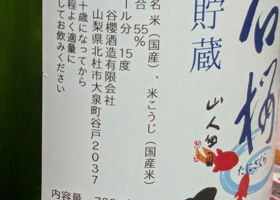 谷櫻
たにざくら
貯蔵
名 米（国産）、米こうじ（国産米）
合 55％
ール分 15度
谷櫻酒造有限会社
山梨県北杜市大泉町谷戸2037
十歳になってから
程よく適量に
してお飲みください
内容量 720